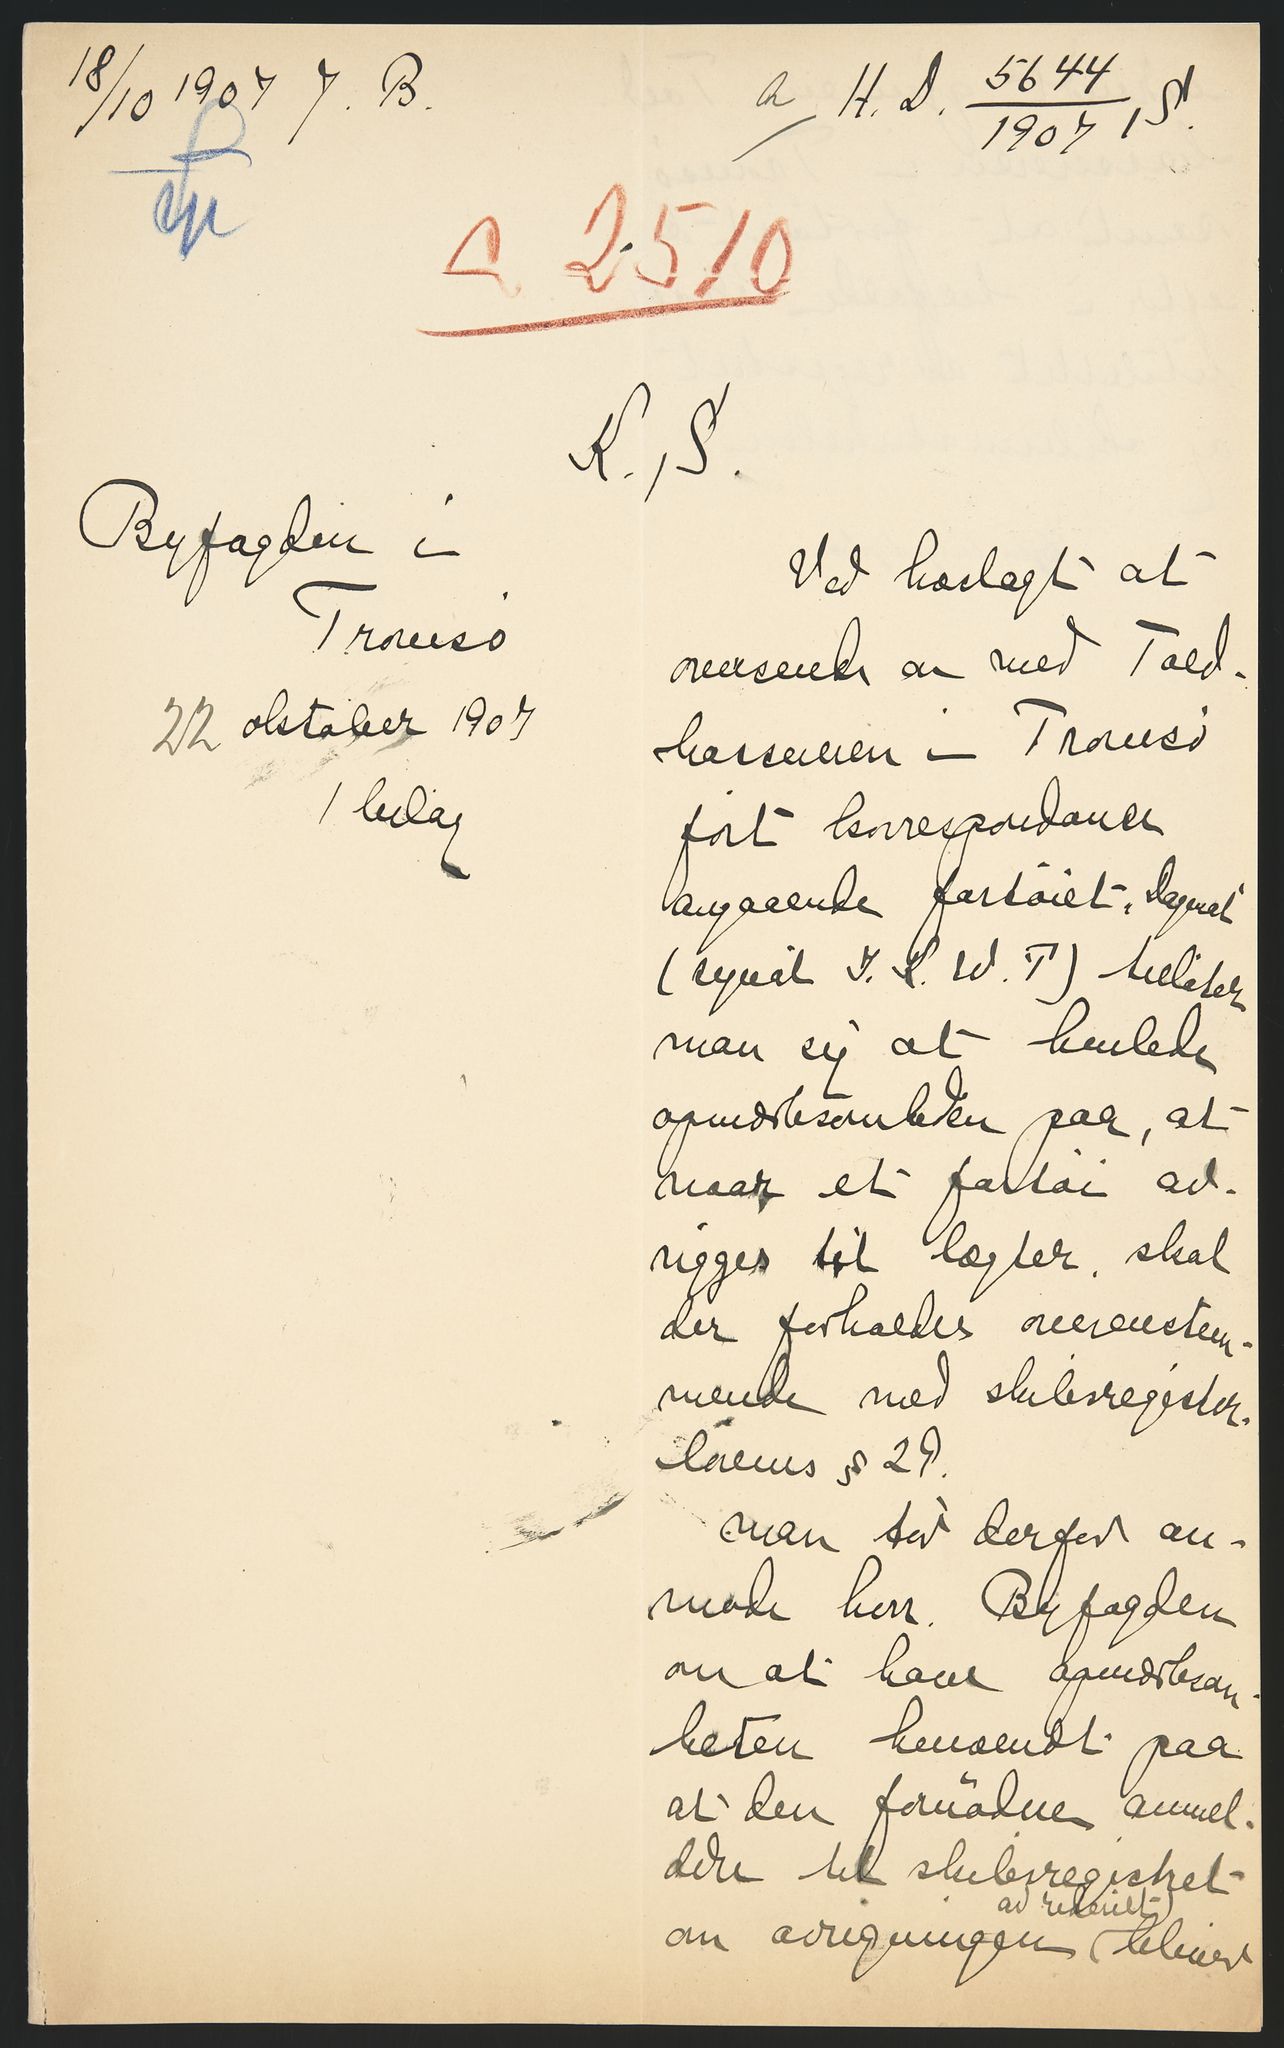 18/10 1907 J. B.
a H. D. 5644/1907, S.
a 2510
K., S.
Byfogden i
Tromsö
22 oktober 1907
1 bilag
Ved hoslagt at
oversende en med Told-
kassereren i Tromsö
fört korrespondance
angaaende fartöiet "Dagmar"
(signal J. K. W. T) tillater
man sig at henlede
opmerksomheden paa, at
naar et fartöi av-
rigges til lægter, skal
der forholdes overenstem-
mende med skibsregister-
lovens § 28.
Man tör derfor an-
mode herr Byfogden
om at have opmerksom-
heten henvendt paa
at den fornödne anmel-
delse til skibsregistret
av rederiet
om avrigningen bliver